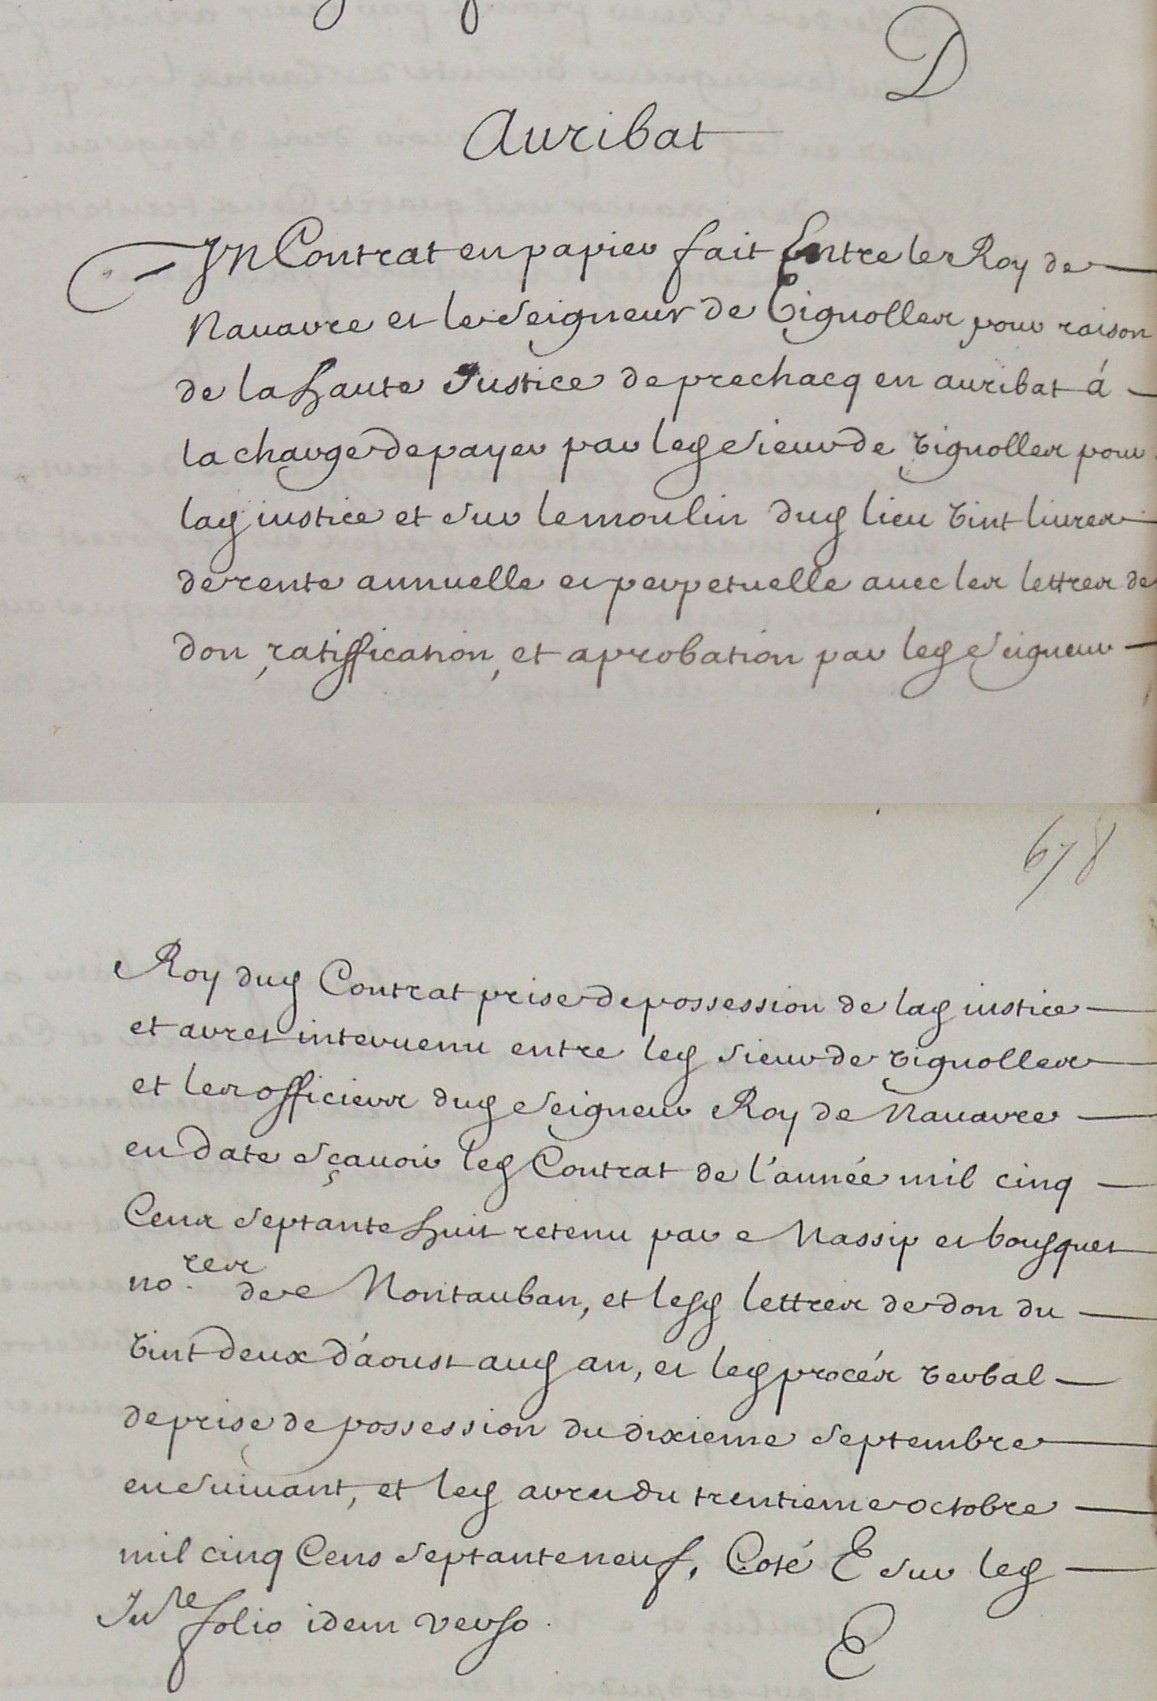 D
Auribat
Un Contrat en papier fait Entre le Roy de
Nauarre et le Seigneur de Vignolles pour raison
de la haute Justice de prechacq en auribat á
la charge de payer par led Sieur de Vignolles pour
lad iustice et sur le moulin dud lieu vint liures
de rente annuelle et perpetuelle auec les lettres de
don, ratiffication, et aprobation par led Seigneur
678
Roy dud Contrat prise de possession de lad iustice
et arrest interuenu entre led Sieur de Vignolles
et les officiers dud Seigneur Roy de Nauarre
en date Sçauoir led Contrat de l'année mil cinq
Cens Septante huit retenu par Massip et bousquet
no.res de Montauban, et lesd lettres de don du
vint deux d'áoust aud an, et led procés verbal
de prise de possession du dixieme Septembre
en Suiuant, et led arrest du trentieme octobre
mil cinq Cens Septante neuf, Coté E sur led
Inre folio idem verso.
E